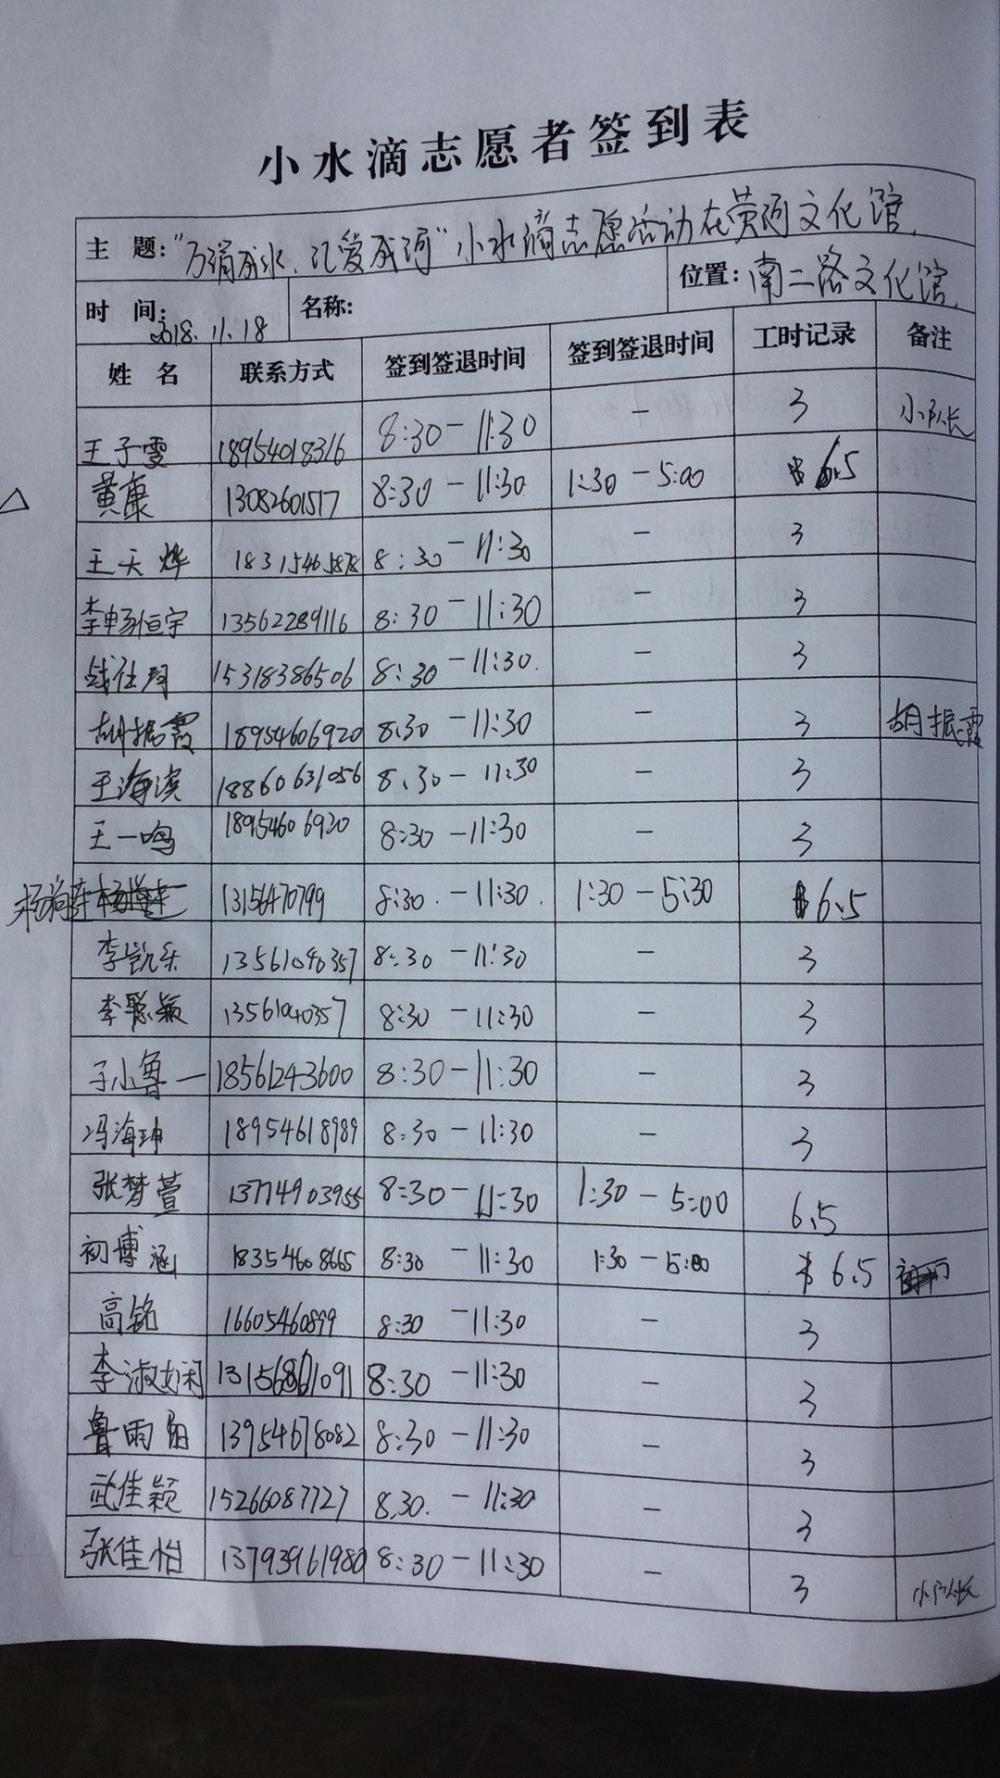 小水滴志愿者签到表
主 题: "万涓成水、汇爱成河"小水滴志愿活动在黄河文化馆.
时 间: 2018.11.18 名称: 位置: 南二路文化馆.
姓 名 联系方式 签到签退时间 签到签退时间 工时记录 备注
王子雯 18954018316 8:30-11:30 - 3 小队长
△ 黄康 13082601517 8:30-11:30 1:30-5:00 6.5
王天烨 18315465878 8:30-11:30 - 3
李畅恒宇 13562289116 8:30-11:30 - 3
15318386506 8:30-11:30. - 3
胡振霞 18954606920 8:30-11:30 - 3 胡振霞
王海滨 18860631056 8:30-11:30 - 3
王一鸣 18954606920 8:30-11:30 - 3
13156470799 8:30.-11:30. 1:30-5:30 6.5
李凯乐 13561040357 8:30-11:30 - 3
李聪颖 13561040357 8:30-11:30 - 3
于小鲁一 18561243600 8:30-11:30 - 3
冯海珅 18954618989 8:30-11:30 - 3
张梦萱 13774903955 8:30-11:30 1:30-5:00 6.5
初博涵 18354608665 8:30-11:30 1:30-5:00 6.5
高铭 16605460899 8:30-11:30 - 3
李淑娴 13156861091 8:30-11:30 - 3
鲁雨阳 13954678082 8:30-11:30 - 3
武佳颖 15266087727 8.30.-11:30 - 3
张佳怡 13793961980 8:30-11:30 - 3 小队长